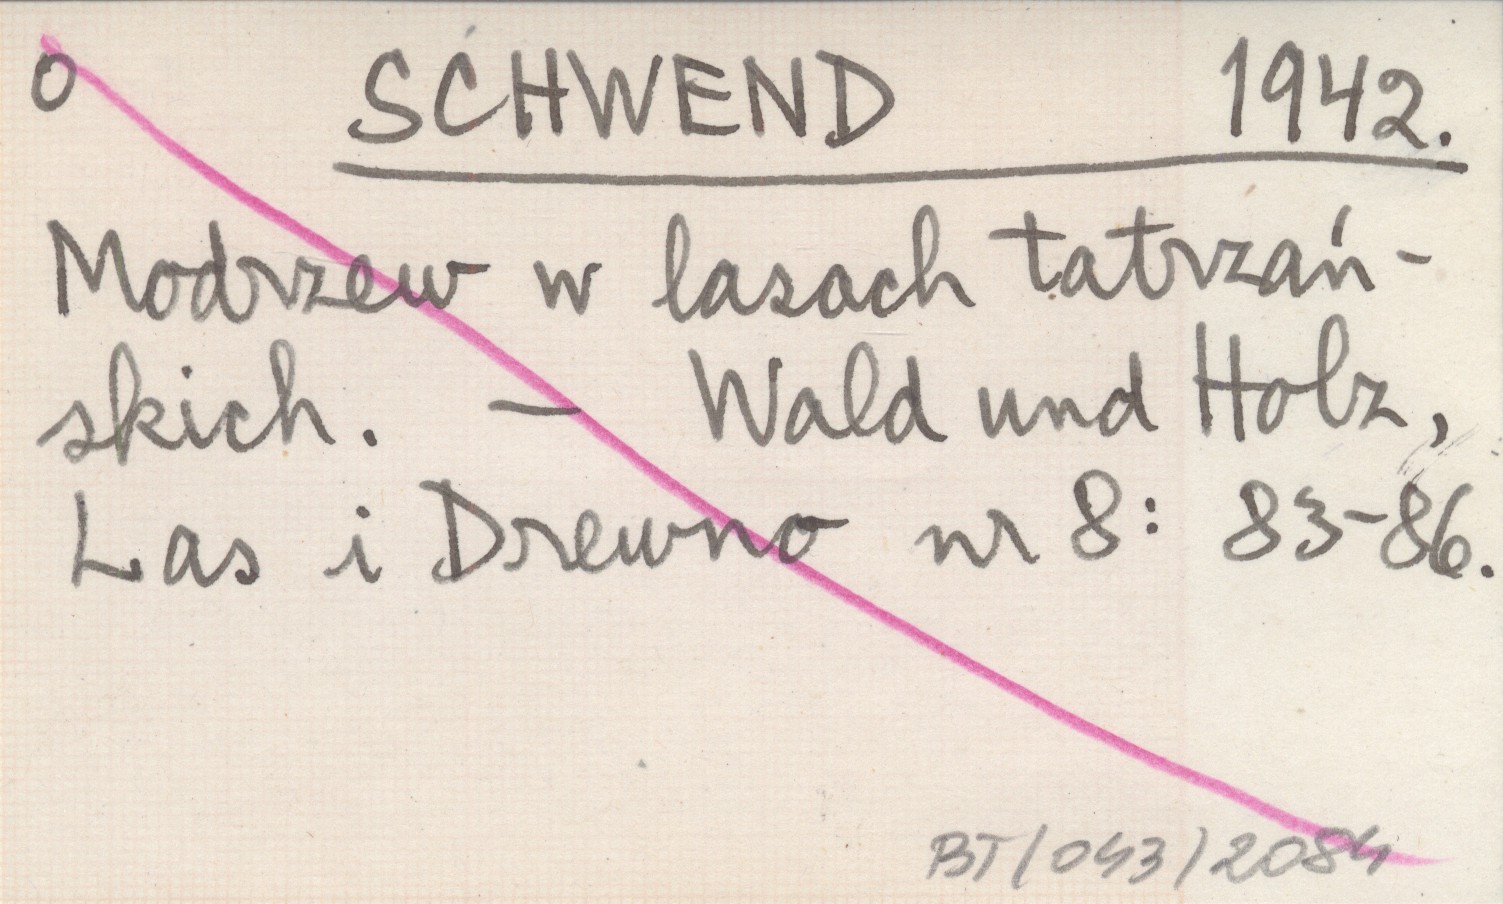 o SCHWEND 1942.
Modrzew w lasach tatrzań-
skich. — Wald und Holz,
Las i Drewno nr 8: 83-86.
BT/043/2084